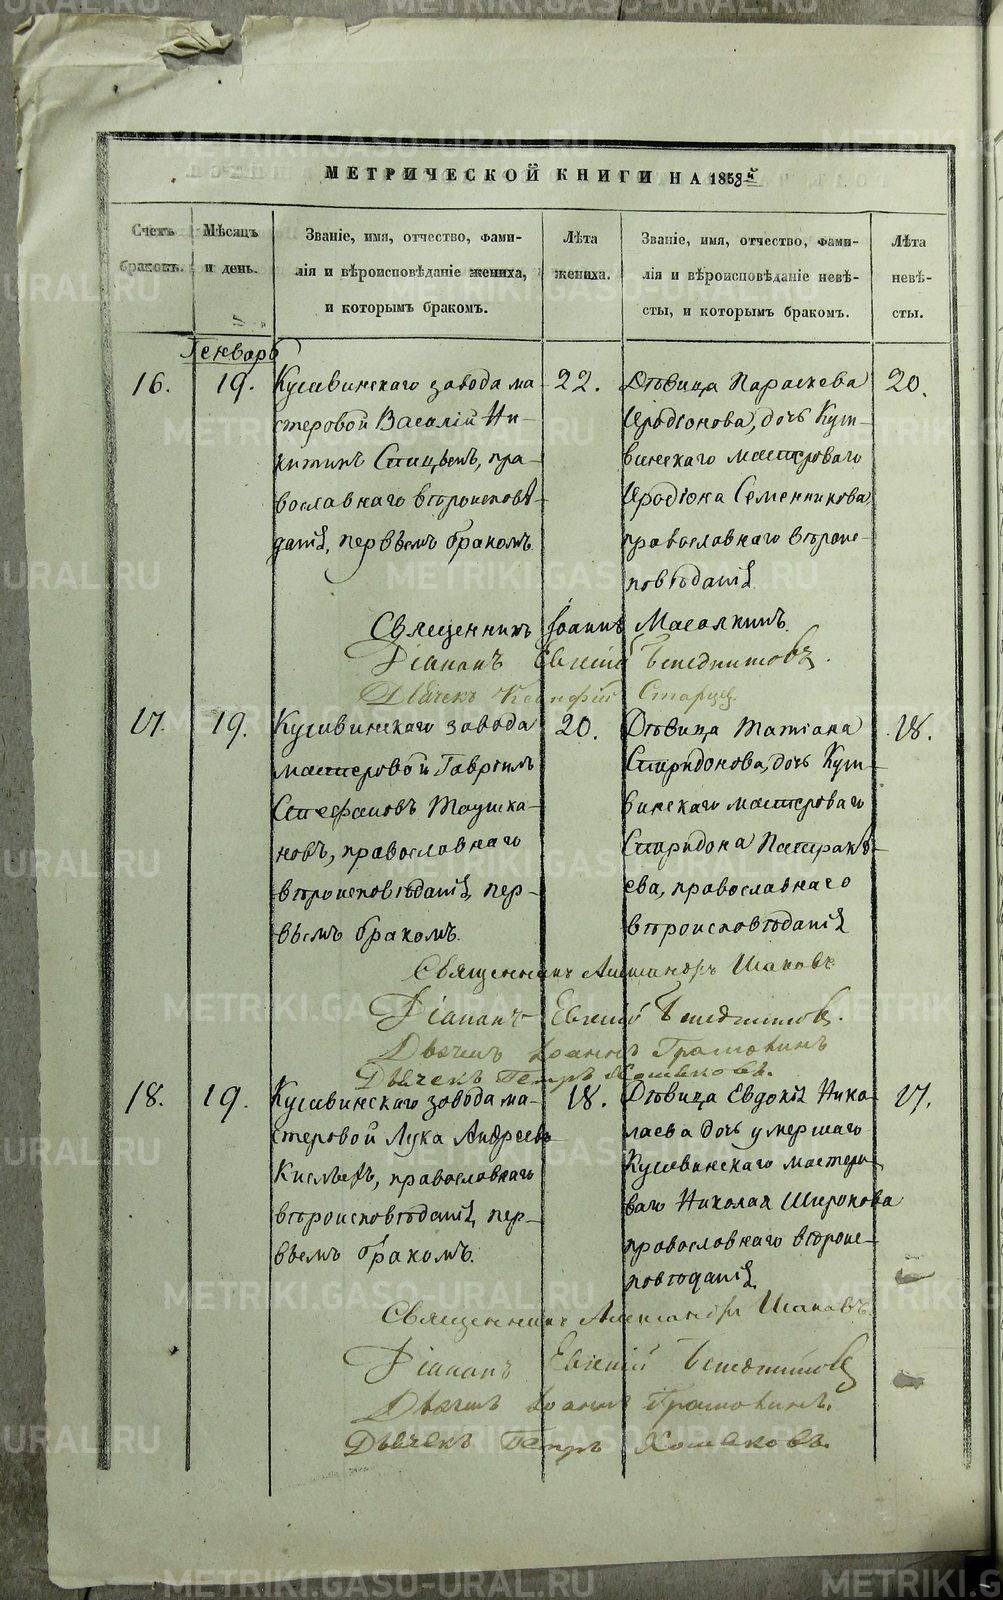 МЕТРИЧЕСКОЙ КНИГИ НА 1858й
Счехъ браковъ.
Мѣсяцъ и день.
Званіе, имя, отчество, фами-
лія и вѣроисповѣданіе жениха,
и которымъ бракомъ.
Лѣта
жениха.
Званіе, имя, отчество, фами-
лія и вѣроисповѣданіе невѣ-
сты, и которымъ бракомъ.
Лѣта
невѣ-
сты.
Генварь
16.
19.
Кушвинскаго завода ма
стеровой Василій Ни-
китинъ Спицынъ, пра-
вославнаго вѣроисповѣ-
данія, первымъ бракомъ
22.
Дѣвица Параскева
Иродіонова, дочь Куш-
винскаго мастероваго
Иродіона Семенникова
православнаго вѣроис-
повѣданія
20.
Священникъ Іоаннъ
Діаконъ Евгеній
Дьячекъ
17.
19.
Кушвинскаго завода
мастеровой Гавріилъ
Стефановъ Таушка-
новъ, православнаго
вѣроисповѣданія, пер-
вымъ бракомъ.
20.
Дѣвица Татіана
Спиридонова, дочь Куш-
винскаго мастероваго
Спиридона Патракѣ-
ева, православнаго
вѣроисповѣданія
18.
Священникъ Александръ
Діаконъ Евгеній
Дьячекъ Іоаннъ
Дьячекъ Петръ Хомяковъ.
18.
19.
Кушвинскаго завода ма-
стеровой Лука Андреевъ
православнаго
вѣроисповѣданія, пер-
вымъ бракомъ.
18.
Дѣвица Евдокія Нико
лаева дочь умершаго
Кушвинскаго мастеро
ваго Николая Широкова
православнаго вѣроис-
повѣданія
17.
Священникъ Александръ
Діаконъ Евгеній
Дьячекъ Іоаннъ
Дьячекъ Петръ Хомяковъ.
METRIKI.GASO-URAL.RU